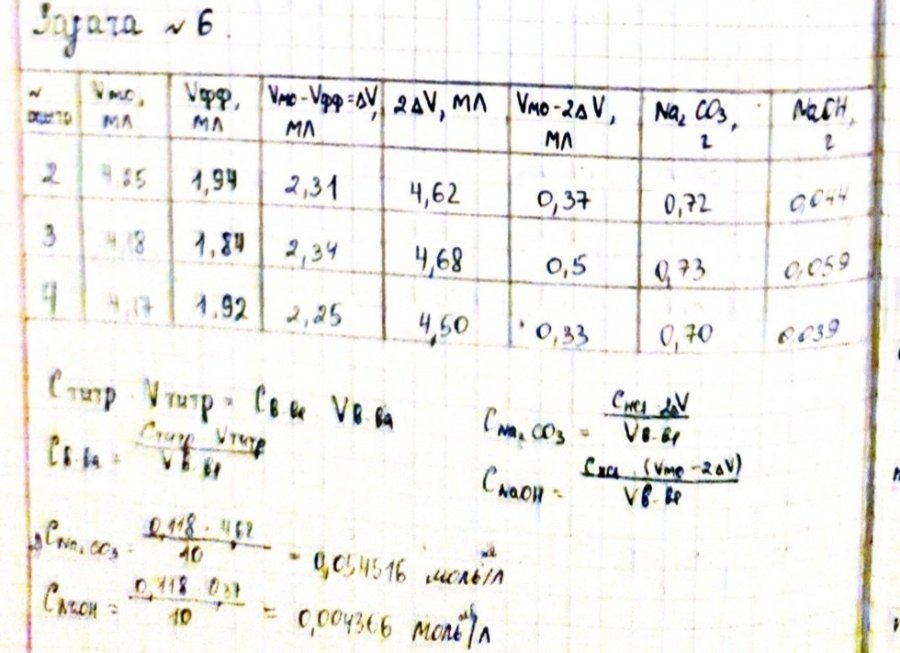 Задача №6.
N
Vмо, мл
Vфф, мл
Vмо-Vфф=ΔV, мл
2ΔV, мл
Vмо-2ΔV, мл
Na₂CO₃, г
NaOH, г
2 4,25 1,94 2,31 4,62 0,37 0,72 0,044
3 4,18 1,84 2,34 4,68 0,5 0,73 0,059
4 4,17 1.92 2,25 4,50 0,33 0,70 0.039
Cтитр · Vтитр = Cв-ва Vв-ва
Cв-ва = Cтитр · Vтитр / Vв-ва
CNa₂CO₃ = CHCl · 2ΔV / Vв-ва
CNaOH = CHCl · (Vмо - 2ΔV) / Vв-ва
CNa₂CO₃ = 0,118 · 4,62 / 10 = 0,054516 моль/л
CNaOH = 0,118 · 0,37 / 10 = 0,004366 моль/л